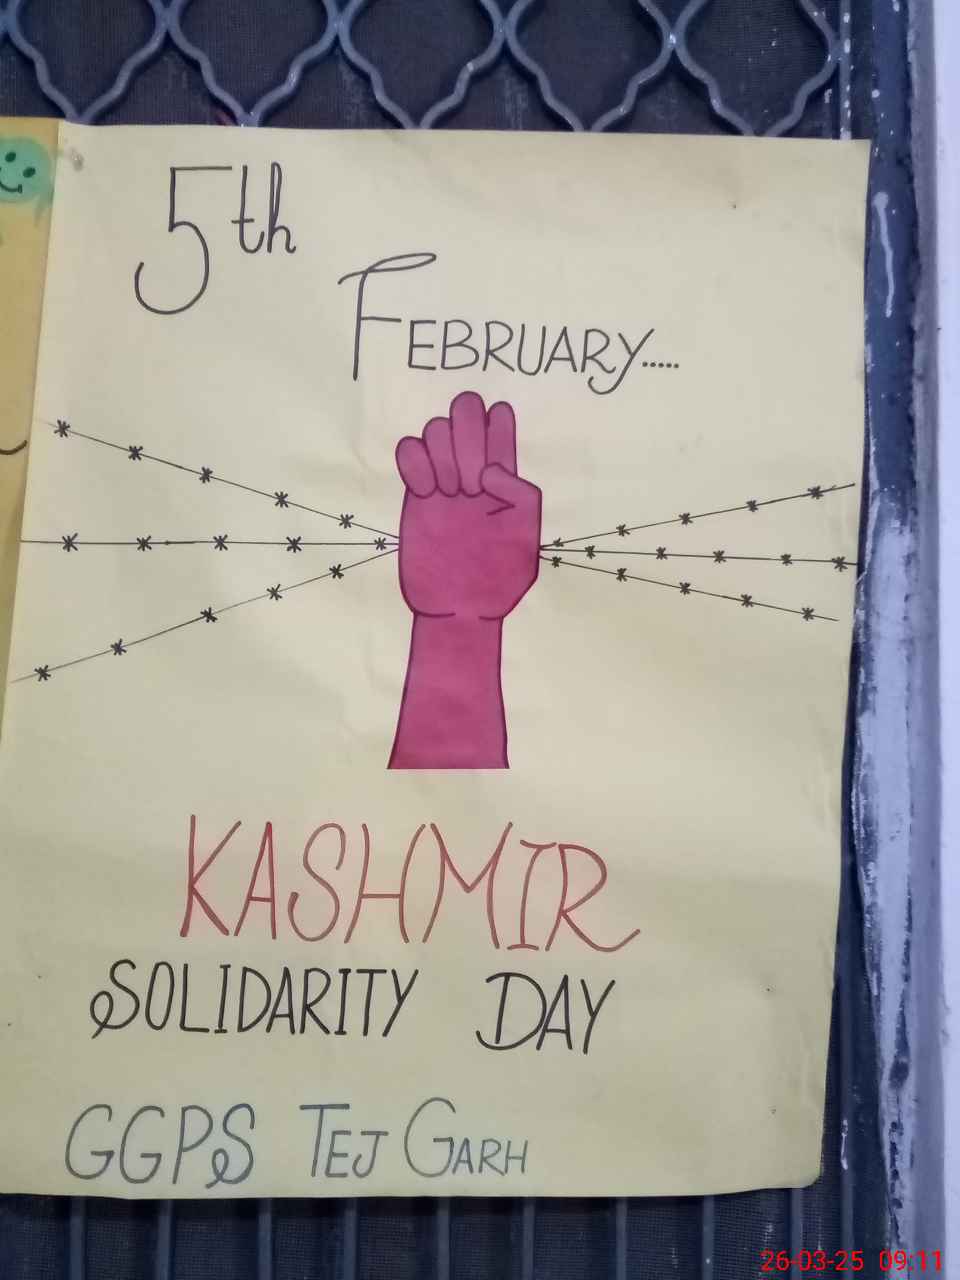 5th
FEBRUARY.....
KASHMIR
SOLIDARITY DAY
GGPS TEJ GARH
26-03-25 09:11